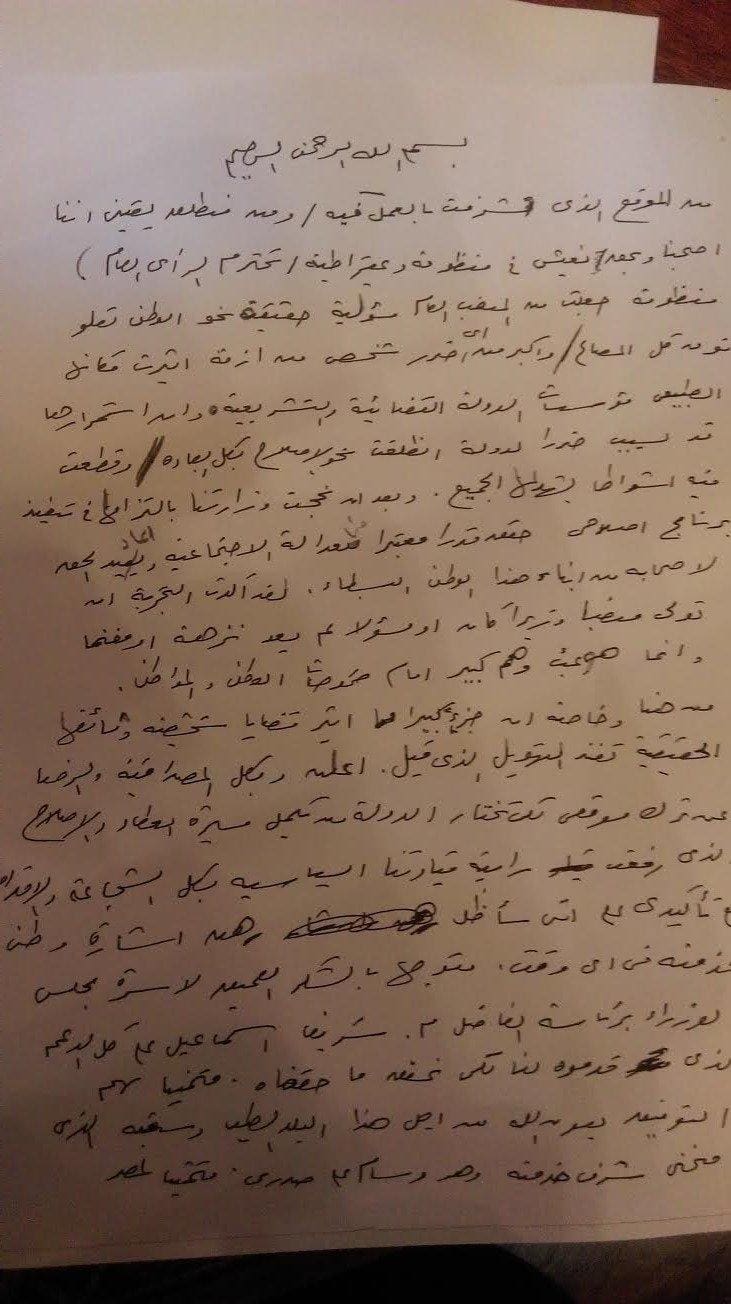 بسم الله الرحمن الرحيم
من الموقع الذى شرفت بالعمل فيه / ومن منطلق يقين اننا
اصبحنا وبحق / نعيش فى منظومة ديمقراطية / تحترم الرأى العام )
منظومة جعلت من المنصب العام مسؤلية حقيقة نحو الوطن تعلو
فوق كل المصالح / واكبر من اى ضرر شخصى من ازمة اثيرت مكانها
الطبيعى مؤسسات الدولة القضائية والتشريعية وان استمرارها
قد يسبب ضررا لدولة انطلقت نحو الاصلاح بكل ابعاده / وقطعت
فيه اشواطا يشهد لها الجميع . وبعد ان نجحت وزارتنا بالتزامها فى تنفيذ
برنامج اصلاحى حقق قدرا معتبرا من العدالة الاجتماعية واعاد الحق
لاصحابه من ابناء هذا الوطن البسطاء . لقد اكدت التجربة ان
تولى منصبا وزيرا كان او مسؤلا لم يعد نزهة او مغنما
وانما هو عبئ وهم كبير امام طموحات الوطن والمواطن .
من هنا وخاصة ان جزء كبيرا مما اثير قضايا شخصية وثائقها
الحقيقية تفند التهويل الذى قيل . اعلن وبكل المصداقية والرضا
عن ترك موقعى لكى تختار الدولة من يكمل مسيرة العطاء والاصلاح
الذى رفعت راية قيادتنا السياسيه بكل الشجاعة والاقدام
مع تأكيدى على اننى سأظل رهن اشارة وطن
خدمته فى اى وقت . متوجها بالشكر العميق لاسرة مجلس
الوزراء برئاسة الفاضل م . شريف اسماعيل على كل الدعم
الذى قدموه لنا لكى نحقق ما حققناه . متمنيا لهم
التوفيق بعون الله من اجل هذا البلد الطيب وشعبه الذى
منحنى شرف خدمته وهو وسام على صدرى . متمنيا لمصر